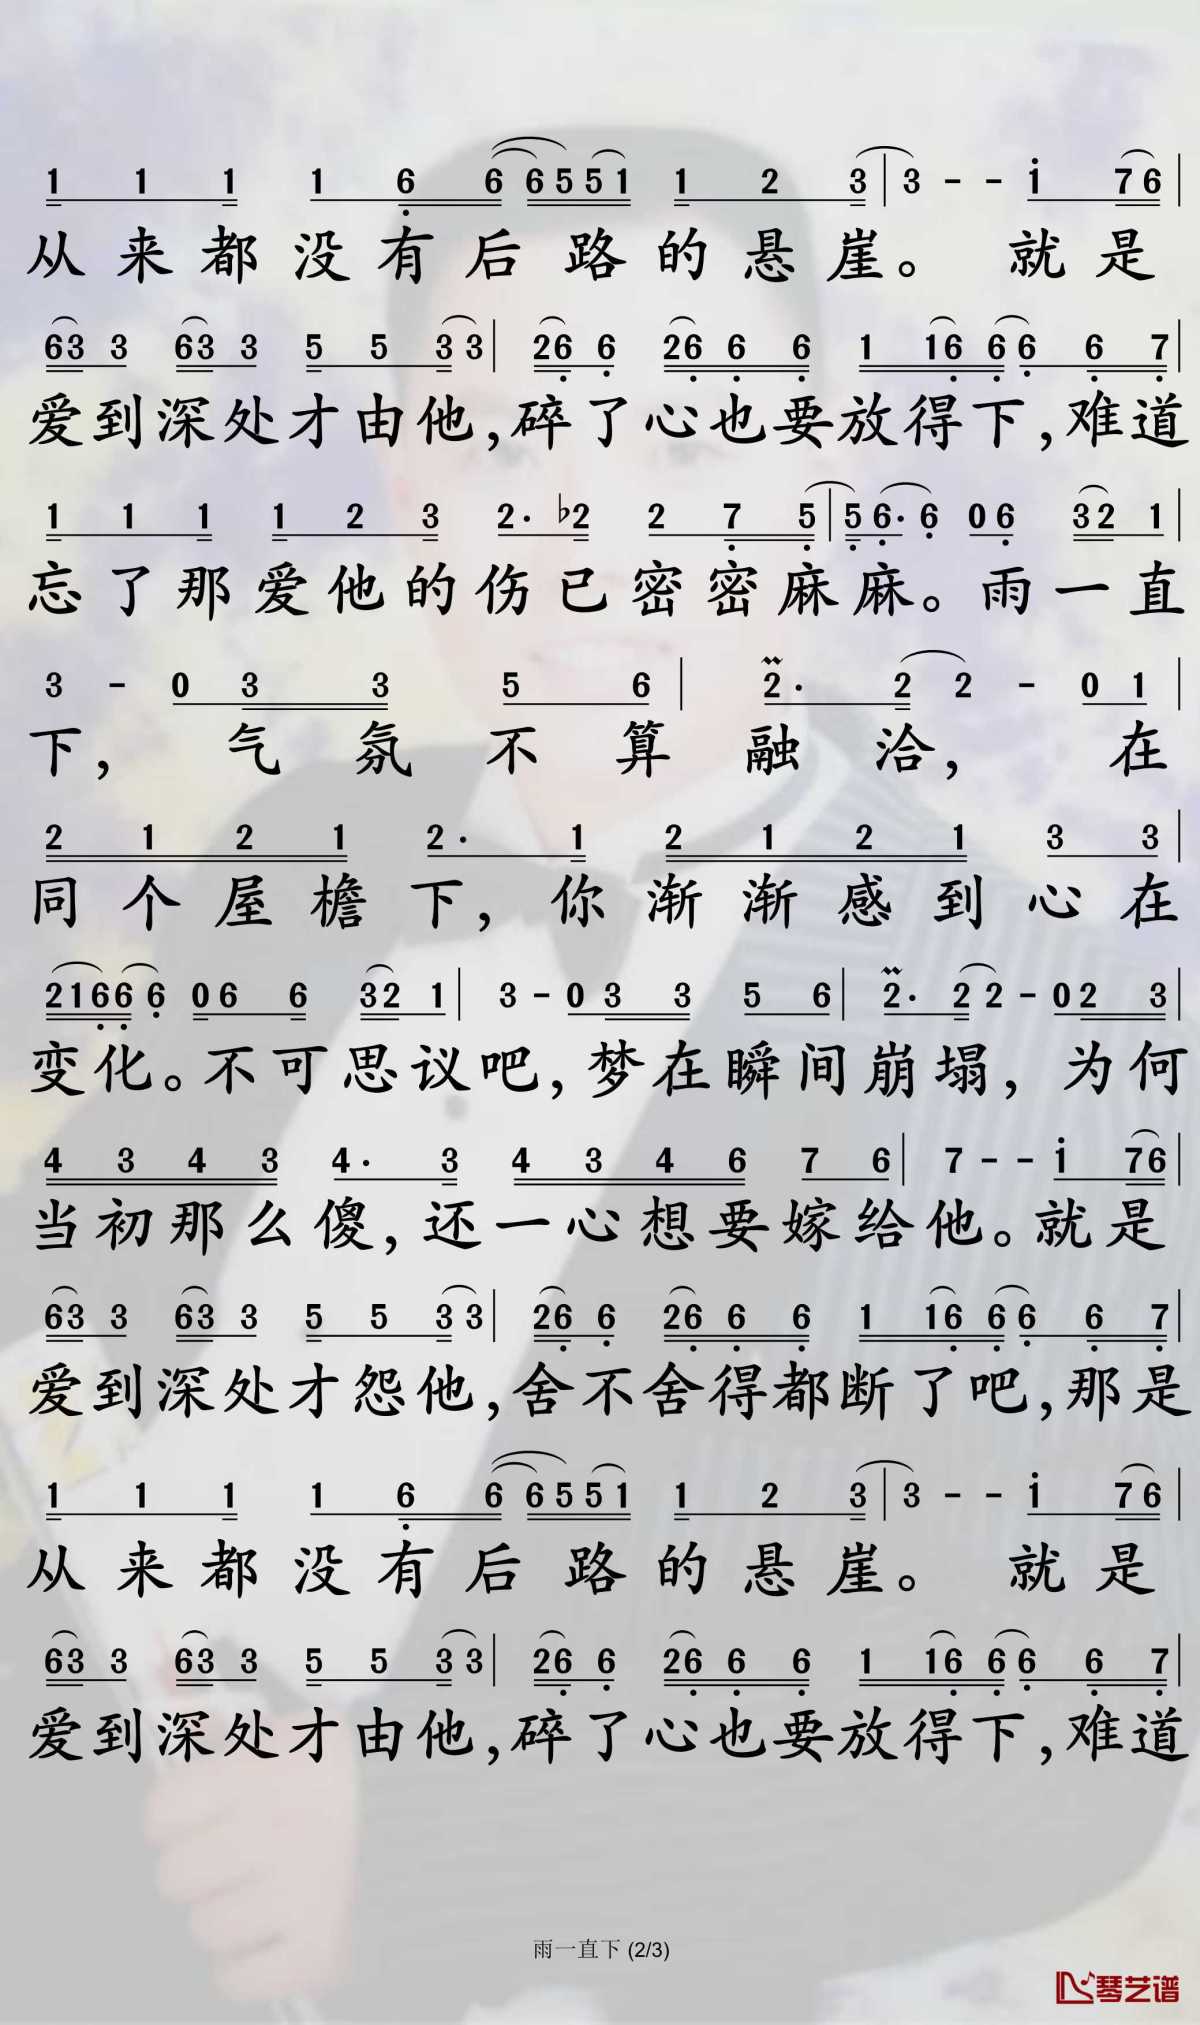 1 1 1 1 6 6 6 5 5 1 1 2 3 | 3 - - 1 7 6 |
从来都没有后路的悬崖。 就是
6 3 3 6 3 3 5 5 3 3 | 2 6 6 2 6 6 6 1 1 6 6 6 6 7 |
爱到深处才由他,碎了心也要放得下,难道
1 1 1 1 2 3 2· ♭2 2 7 5 | 5 6· 6 0 6 3 2 1 |
忘了那爱他的伤已密密麻麻。雨一直
3 - 0 3 3 5 6 | 2· 2 2 - 0 1 |
下, 气氛不算融洽, 在
2 1 2 1 2· 1 2 1 2 1 3 3 |
同个屋檐下,你渐渐感到心在
2 1 6 6 6 0 6 6 3 2 1 | 3 - 0 3 3 5 6 | 2· 2 2 - 0 2 3 |
变化。不可思议吧,梦在瞬间崩塌,为何
4 3 4 3 4· 3 4 3 4 6 7 6 | 7 - - 1 7 6 |
当初那么傻,还一心想要嫁给他。就是
6 3 3 6 3 3 5 5 3 3 | 2 6 6 2 6 6 6 1 1 6 6 6 6 7 |
爱到深处才怨他,舍不舍得都断了吧,那是
1 1 1 1 6 6 6 5 5 1 1 2 3 | 3 - - 1 7 6 |
从来都没有后路的悬崖。 就是
6 3 3 6 3 3 5 5 3 3 | 2 6 6 2 6 6 6 1 1 6 6 6 6 7 |
爱到深处才由他,碎了心也要放得下,难道
雨一直下 (2/3)
琴艺谱